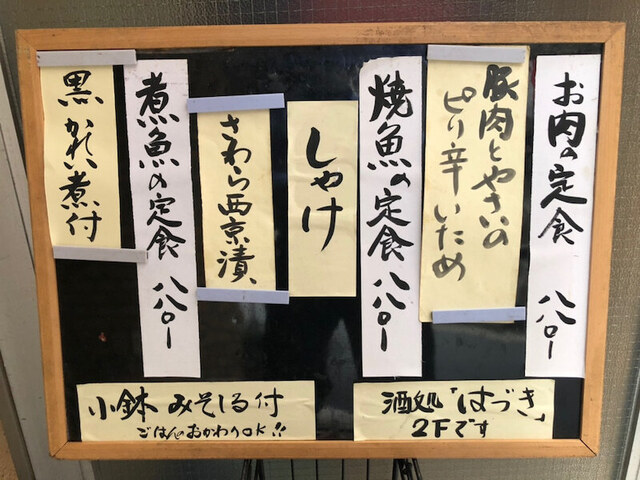 お肉の定食 八八〇ー
豚肉とやさいの
ピリ辛いため
焼魚の定食 八八〇ー
しゃけ
さわら西京漬
煮魚の定食 八八〇ー
黒かれい煮付
小鉢 みそしる付
ごはんのおかわりOK!!
酒処「はづき」
2Fです